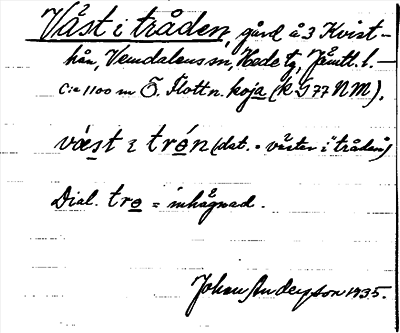 Våst i tråden, gård å 3 Kvist-
hån, Vemdalens sn, Hede tg, Jämtl. l. —
c:a 1100 m Ö. Flottn. koja (RG 77 NM).
våst i trón (dat. = väster i "tråden")
Dial. tro = inhägnad.
Johan Anderzson 1935.